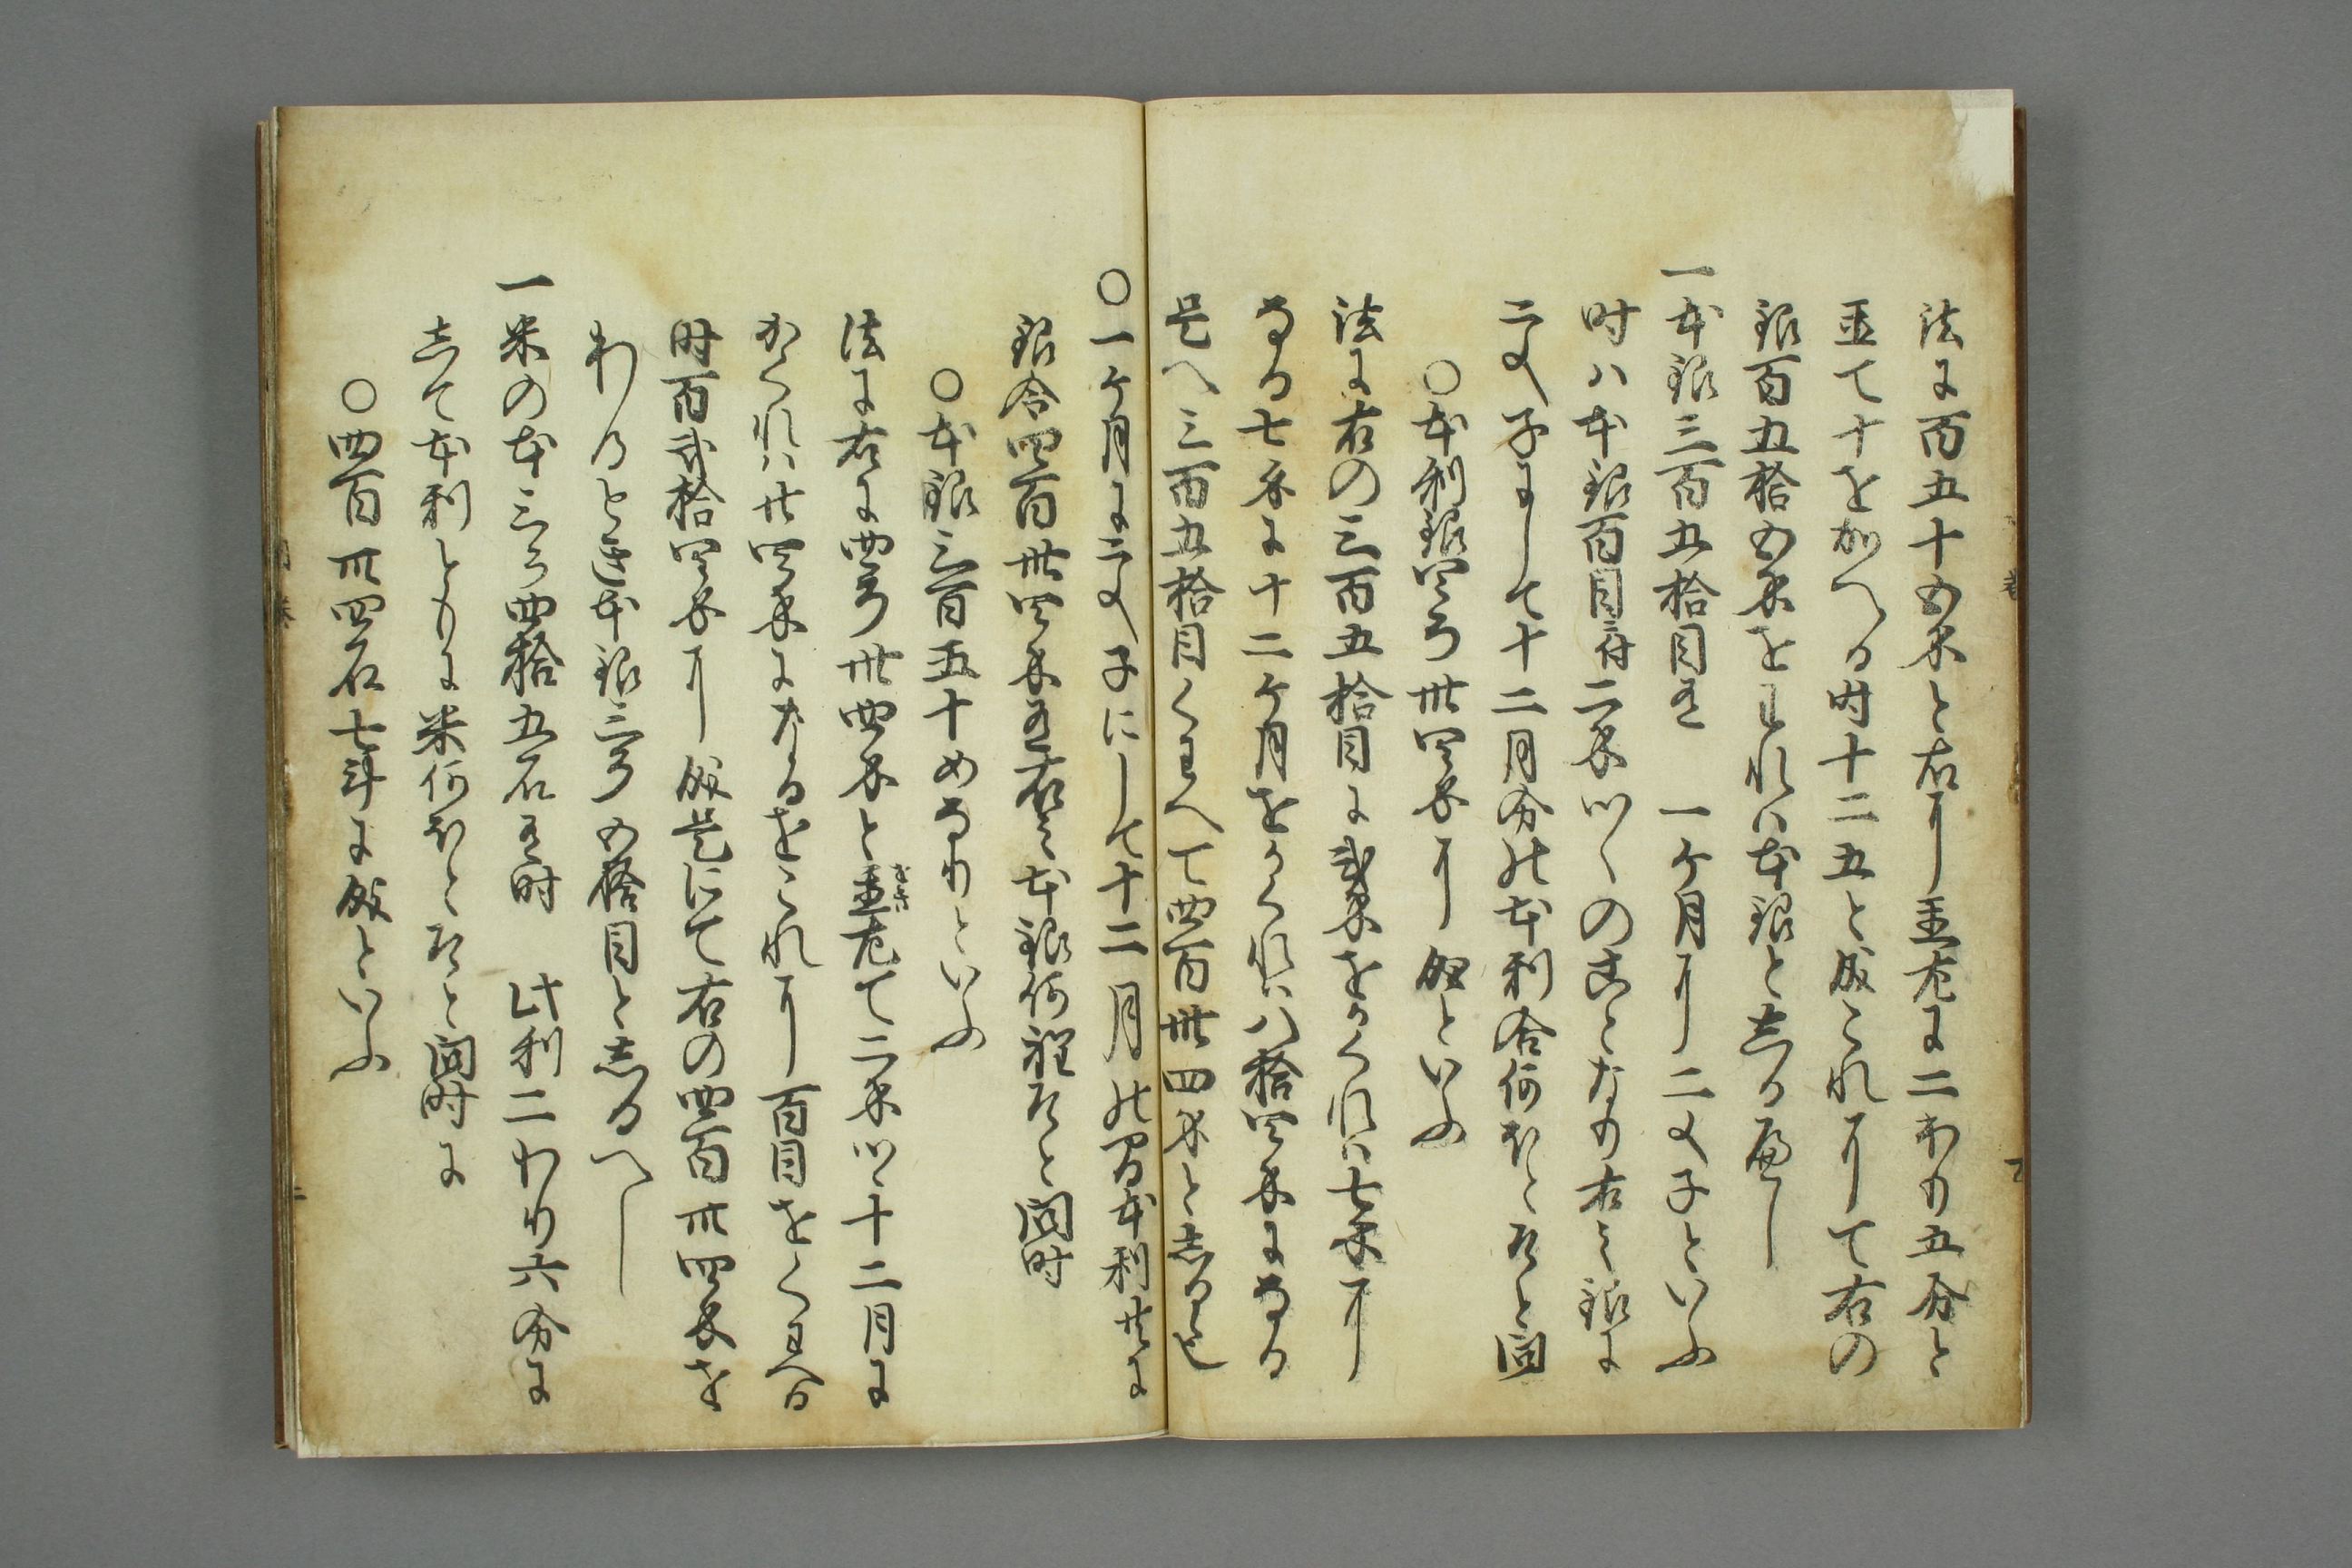 法に百五十五匁と右に置左に二わり五分と
置て十を加へる時十二五と成これにて右の
銀百五拾五匁をわれは本銀と志る也
一本銀三百五拾目有　一ケ月に二文子といふ
時ハ本銀百目に付二匁つゝのことなり右之銀に
二文子にして十二月分の本利合何ほとそと問
〇本利銀四百卅四匁に成といふ
法に右の三百五拾目に弐匁をかくれは七匁に
なる七匁に十二ケ月をかくれは八拾四匁になる
是へ三百五拾目くわへて四百卅四匁と志る也
〇一ケ月に二文子にして十二月の間本利共に
銀合四百卅四匁有右之本銀何程そと問時
〇本銀三百五十めなりといふ
法に右に四百卅四匁と置左て二匁つゝ十二月に
かくれは廿四匁になるをこれに百目をくわへる
時百弐拾四匁に成是にて右の四百卅四匁を
わるとき本銀三百五拾目と志るへし
一米の本三百四拾五石有時　此利二わり六分に
志て本利ともに米何ほとそと問時に
〇四百卅四石七斗に成といふ